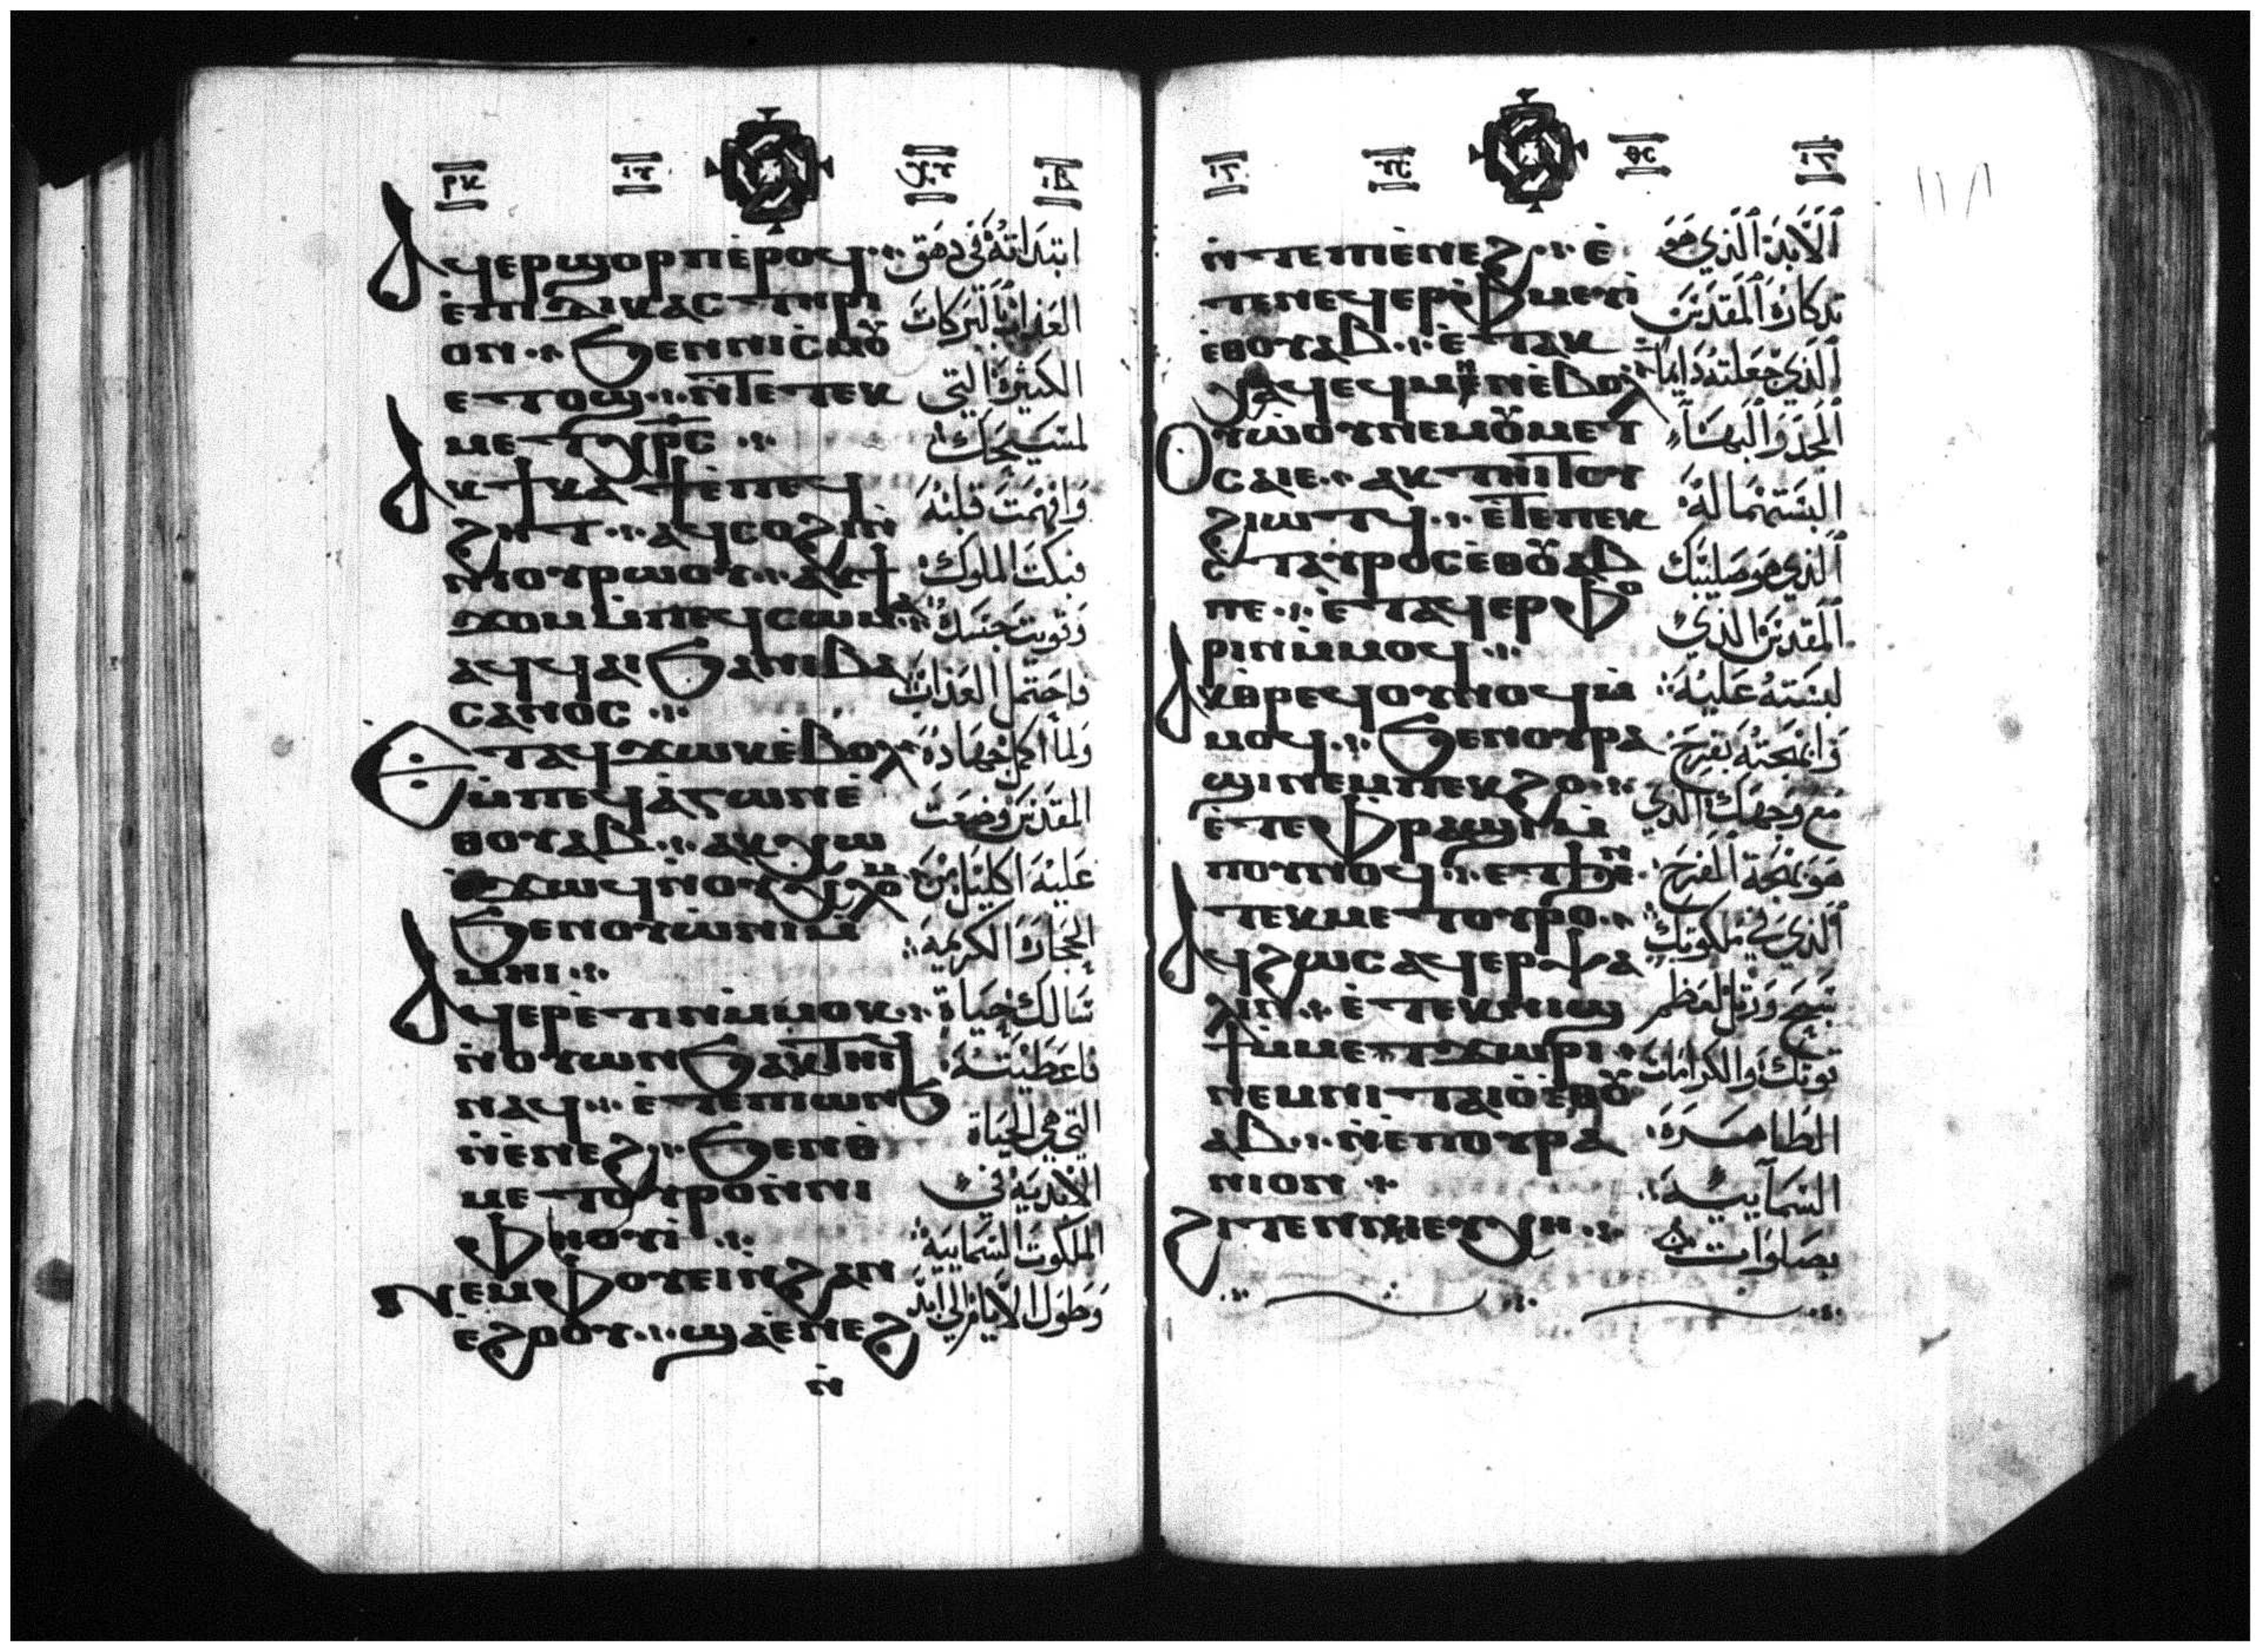 ⲁϥⲉⲣϣⲟⲣⲡⲉⲣⲟϥ
ⲉⲡⲓⲇⲓⲕⲁⲥⲧⲏⲣⲓ
ⲟⲛ ⁘ ϧⲉⲛⲛⲓⲥⲙⲟⲩ
ⲉⲧⲟϣ ⁘ ⲛ̀ⲧⲉⲧⲉⲕ
ⲙⲉⲧⲭⲣⲥ ⁘
ⲁⲕϯⲕⲁϯⲉ̀ⲡⲉϥ
ϩⲏⲧ ⁘ ⲁϥⲥⲟϩⲓⲛ̀
ⲛⲓⲟⲩⲣⲱⲟⲩ ⁘ ⲁⲕϯ
ϫⲟⲙⲙ̀ⲡⲉϥⲥⲱⲙⲁ ⁘
ⲁϥϥⲁⲓϧⲁⲛⲓⲃⲁ
ⲥⲁⲛⲟⲥ ⁘
ⲉⲧⲁϥϫⲱⲕⲉ̀ⲃⲟⲗ
ⲙ̀ⲡⲉϥⲁ̀ⲅⲱⲛⲉ̀
ⲑⲟⲩⲁⲃ ⁘ ⲁⲕⲭⲱ
ⲉϫⲱϥⲛ̀ⲟⲩⲭⲗⲟⲙ
ϧⲉⲛⲟⲩⲱ̀ⲛⲓⲙ̀
ⲙⲏⲓ ⁘
ⲁϥⲉⲣⲉ̀ⲧⲓⲛⲙ̀ⲙⲟⲕ ⁘
ⲛ̀ⲟⲩⲱⲛϧⲁⲕⲧⲏⲓϥ
ⲛⲁϥ ⁘ ⲉ̀ⲧⲉⲡⲓⲱⲛϧ
ⲛ̀ⲉ̀ⲛⲉϩ ⁘ ϧⲉⲛⲑ
ⲙⲉⲧⲟⲩⲣⲟⲛ̀ⲛⲓ
ⲫⲏⲟⲩⲓ̀ ⁘
ⲛⲉⲙⲫⲟⲩⲉⲓⲛ̀ϩⲁⲛ
ⲉ̀ϩⲟⲟⲩ ⁘ ϣⲁⲉ̀ⲛⲉϩ
ⲛ̀
العذاب البركات
الكثيرة التي
لمسيحك
وافهمت قلبه
فبكت الملوك
وقويت جسده
فاحتمل العذاب
ولما اكمل جهاده
المقدس وضعت
عليه اكليل من
الحجارة الكريمة
سالك حياة
فاعطيته
التي هي الحياة
الابدية في
الملكوت السمايية
وطول الايام الي ابد
ⲛ̀ⲧⲉⲡⲓⲉ̀ⲛⲉϩ ⁘ ⲉ̀
ⲧⲉⲛⲉϥⲉⲣⲫⲙⲉⲩⲓ̀
ⲉⲑⲟⲩⲁⲃ ⁘ ⲉ̀ⲧⲁⲕ
ⲭⲁϥⲉϥⲙⲏⲛⲉ̀ⲃⲟⲗ
ⲟⲩⲱ̀ⲟⲩⲛⲉⲙⲟⲩⲙⲉⲧ
ⲥⲁⲓⲉ ⁘ ⲁⲕⲧⲏⲓⲧⲟⲩ
ϩⲓⲱⲧϥ ⁘ ⲉ̀ⲧⲉⲡⲉⲕ
ⲥ̀ⲧⲁⲩⲣⲟⲥⲉ̀ⲑⲟⲩⲁⲃ
ⲡⲉ ⁘ ⲉ̀ⲧⲁϥⲉⲣⲫⲟ
ⲣⲓⲛⲙ̀ⲙⲟϥ ⁘
ⲁⲕⲑ̀ⲣⲉϥⲟⲩⲛⲟϥⲙ̀
ⲙⲟϥ ⁘ ϧⲉⲛⲟⲩⲣⲁ
ϣⲓⲛⲉⲙⲡⲉⲕϩⲟ ⁘
ⲡⲟⲩⲛⲟϥ ⁘ ⲉⲧϧⲉⲛ
ⲧⲉⲕⲙⲉⲧⲟⲩⲣⲟ ⁘
ⲁϥϩⲱⲥⲁϥⲉⲣⲯⲁ
ⲗⲓⲛ ⁘ ⲉ̀ⲧⲉⲕⲛⲓϣ
ϯⲙ̀ⲙⲉⲧϫⲱⲣⲓ ⁘
ⲛⲉⲙⲛⲓⲧⲁⲓⲟ̀ⲉⲑⲟⲩ
ⲁⲃ ⁘ ⲛ̀ⲉⲡⲟⲩⲣⲁ
ⲛⲓⲟⲛ ⁘
ϩⲓⲧⲉⲛⲛⲓⲉⲩⲭⲏ ⁘
الابد الذي هو
تدكاره المقدس
الذي جعلته دايما
المجد والبهاء
البستهما له
الذي هو صليبك
المقدس الذي
لبسته عليه
وابهجته بفرح
مع وجهك الذي
هو بهجة الفرح
الذي في ملكوتك
سبح ورتل لعظم
قوتك والكرامات
الطاهرة
السمايية
بصلوات